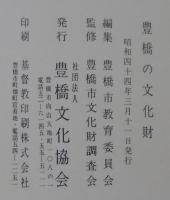 豊橋の文化財
昭和四十四年三月三十一日発行
編集 豊橋市教育委員会
監修 豊橋市文化財調査会
社団法人
発行 豊橋文化協会
豊橋市向山大池町
電話
印刷 基督教印刷株式会社
豊橋市花畑町
電話